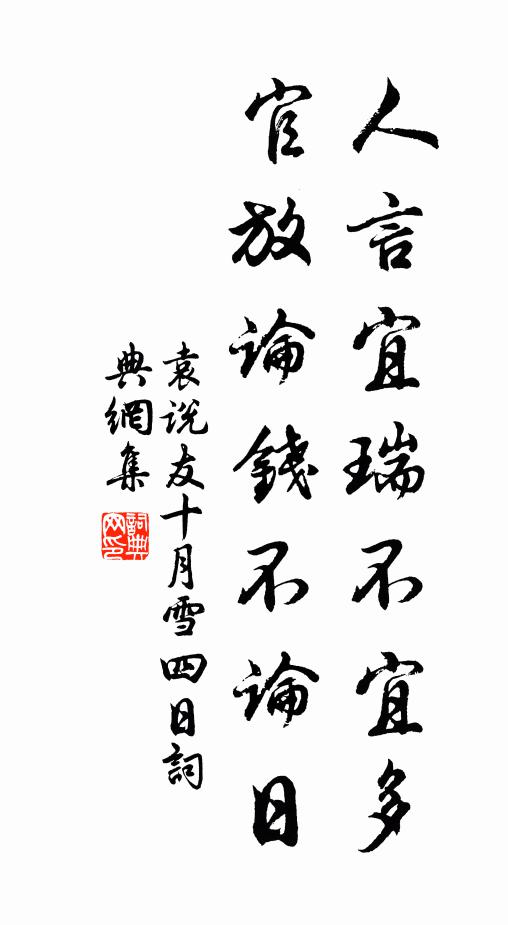 人言宜瑞不宜多
官放論錢不論日
袁說友十月雪四日詞
典網集
詞典
网印